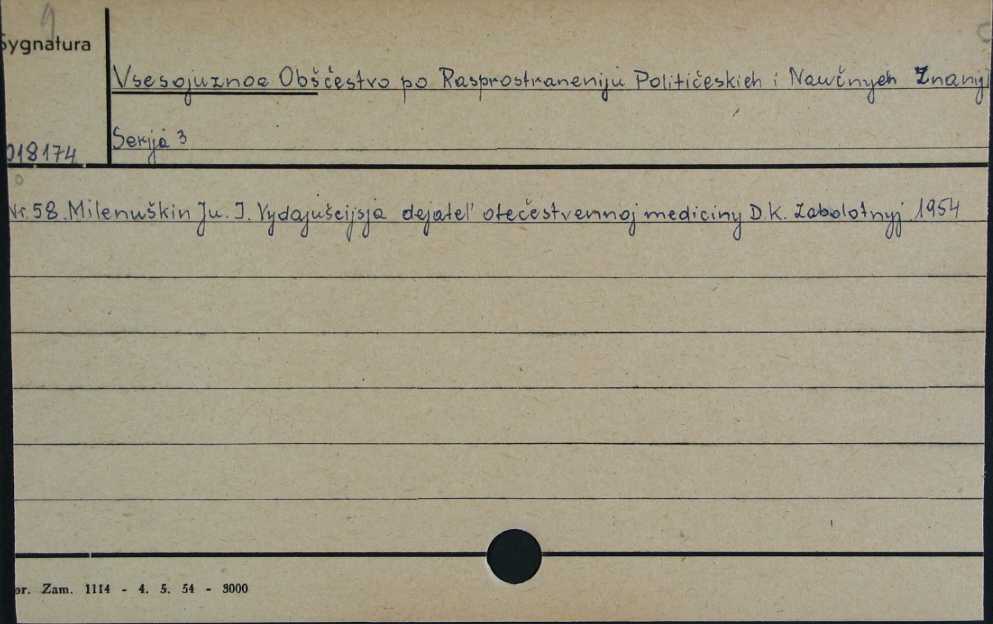 9
Sygnatura
Vsesojuznoe Obščestvo po Rasprostraneniju Političeskich i Naučnych Znanyj
Serija 3
018174
Nr 58. Milenuškin Ju. I. Vydajuščijsja dejatel' otečestvennoj mediciny D.K. Zabolotnyj 1954
Zam. 1114 - 4. 5. 54 - 3000